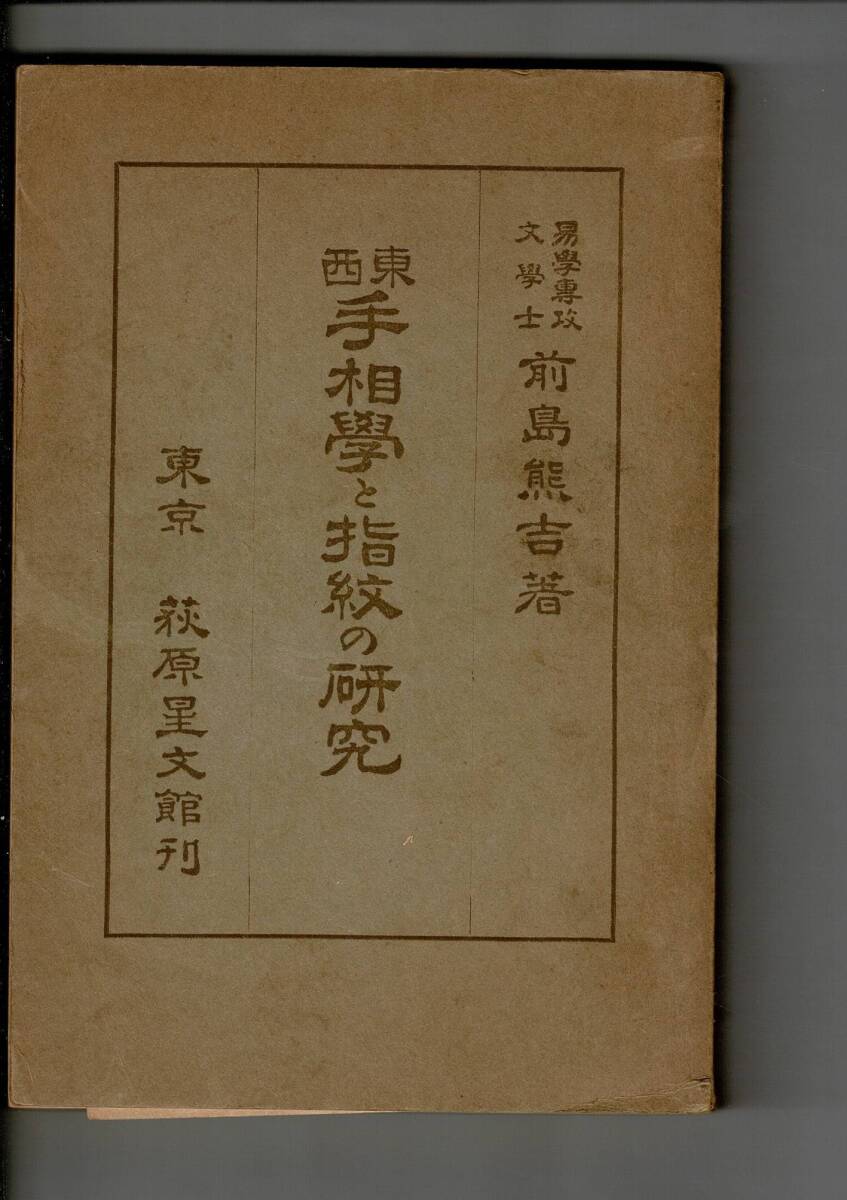 易學專攻
文學士
前島熊吉著
東西
手相學と指紋の研究
東京 萩原星文館刊